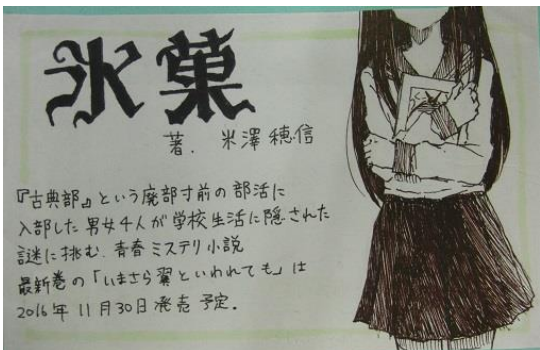 氷菓
著. 米澤穂信
『古典部』という廃部寸前の部活に
入部した男女4人が学校生活に隠された
謎に挑む.青春ミステリ小説
最新巻の「いまさら翼といわれても」は
2016年11月30日発売予定.